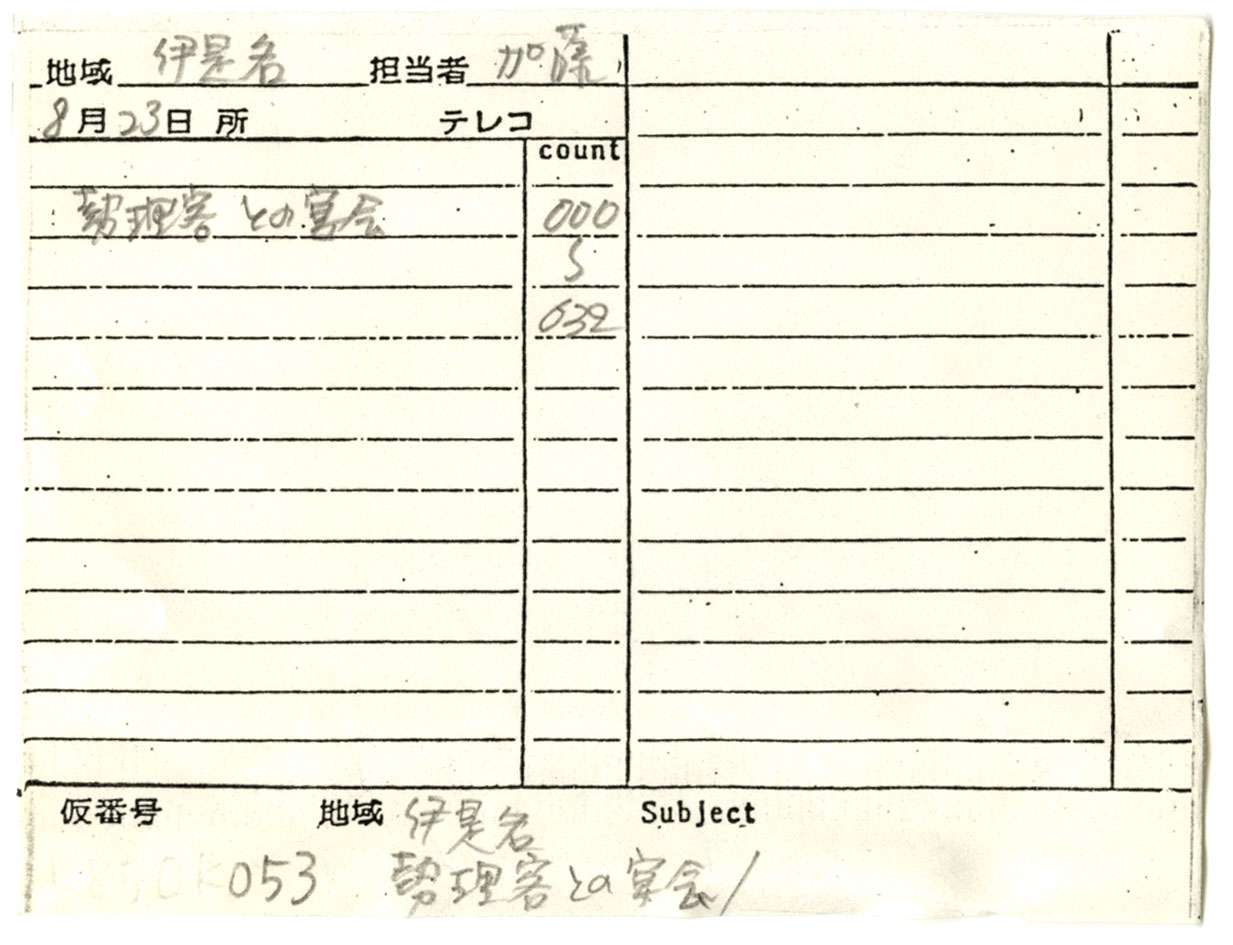 地域 伊是名 担当者 加藤
8月23日 所 テレコ
count
勢理客との宴会 000
S
632
仮番号 地域 伊是名 Subject
053 勢理客との宴会/